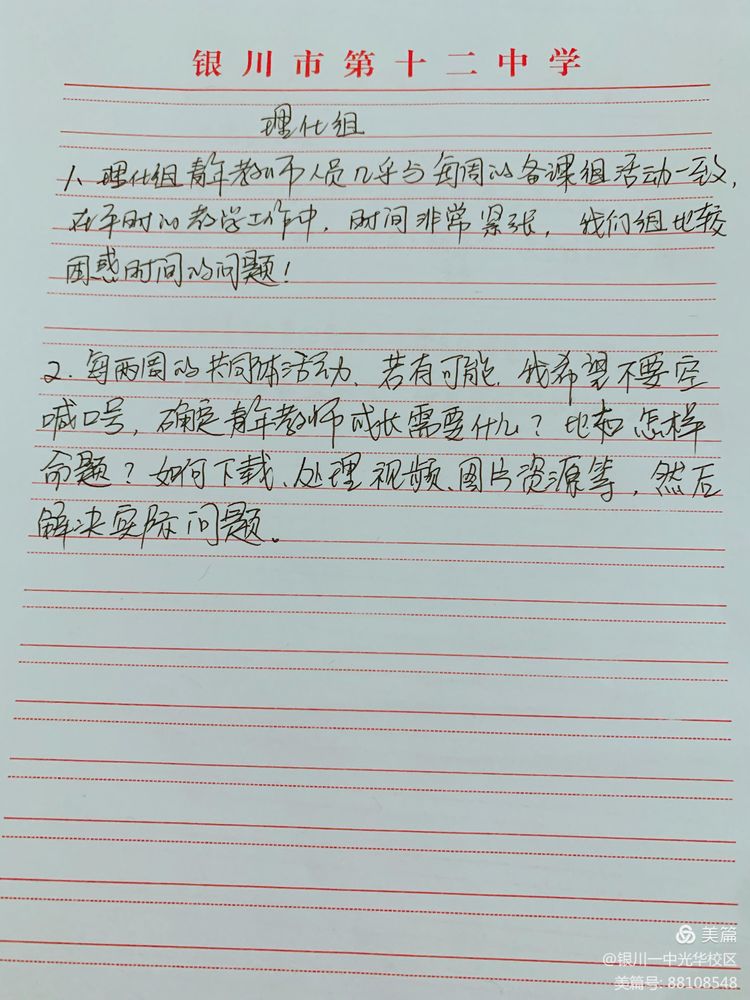 银川市第十二中学
理化组
1、理化组青年教师人员几乎与每周的备课组活动一致，
在平时的教学工作中，时间非常紧张，我们组比较
困惑时间的问题！
2. 每两周的共同体活动、若有可能，我希望不要空
喊口号，确定青年教师成长需要什么？比如怎样
命题？如何下载、处理视频、图片资源等，然后
解决实际问题。
美篇
@银川一中光华校区
美篇号: 88108548